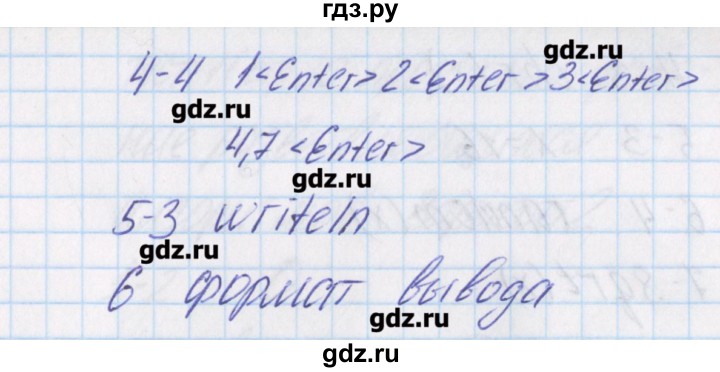 гдз.ру
gdz.ru
4-4 1<Enter> 2<Enter>3<Enter>
gdz.ru
4,7 <Enter>
gdz.ru
5-3 writeln
gdz.ru
6 формат вывода
gdz.ru
gdz.ru